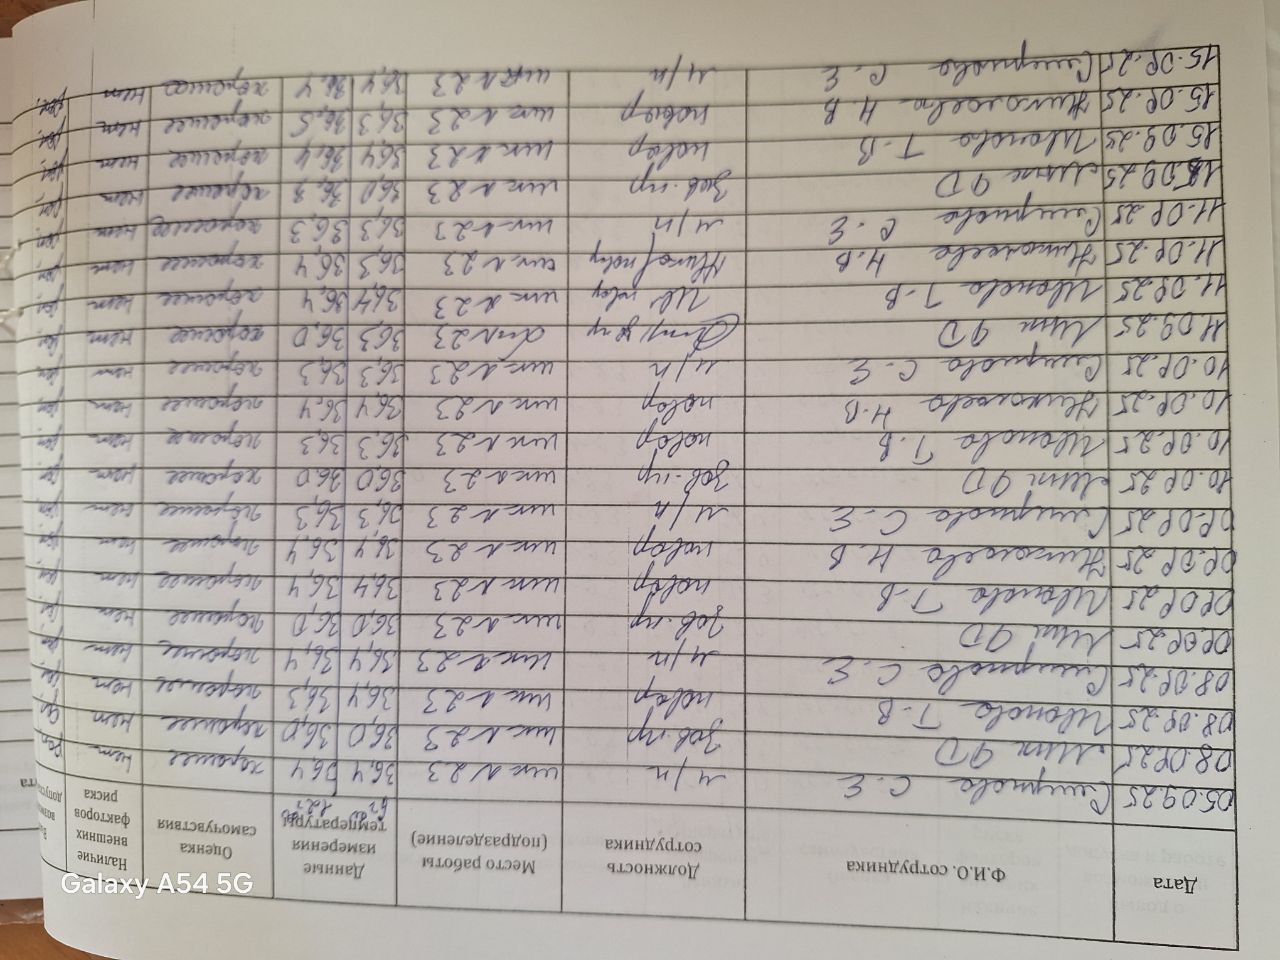 Дата Ф.И.О. сотрудника Должность сотрудника Место работы (подразделение) Данные измерения температуры Оценка самочувствия Наличие внешних факторов риска
05.09.25 Смирнова С.Е м/п шк.№23 36,4 36,4 хорошее нет
08.09.25 Зав.пр шк.№23 36,0 36,0 хорошее нет
08.09.25 Иванова Т.В повар шк.№23 36,4 36,3 хорошее нет
08.09.25 Смирнова С.Е м/п шк.№23 36,4 36,4 хорошее нет
09.09.25 Зав.пр шк.№23 36,0 36,0 хорошее нет
09.09.25 Иванова Т.В повар шк.№23 36,4 36,4 хорошее нет
09.09.25 Николаева Н.В повар шк.№23 36,4 36,4 хорошее нет
09.09.25 Смирнова С.Е м/п шк.№23 36,3 36,3 хорошее нет
10.09.25 Зав.пр шк.№23 36,0 36,0 хорошее нет
10.09.25 Иванова Т.В повар шк.№23 36,3 36,3 хорошее нет
10.09.25 Николаева Н.В повар шк.№23 36,4 36,4 хорошее нет
10.09.25 Смирнова С.Е м/п шк.№23 36,3 36,3 хорошее нет
11.09.25 №23 36,3 36,0 хорошее нет
11.09.25 Иванова Т.В шк.№23 36,4 36,4 хорошее нет
11.09.25 Николаева Н.В шк.№23 36,3 36,4 хорошее нет
11.09.25 Смирнова С.Е м/п шк.№23 36,3 36,3 хорошее нет
15.09.25 Зав.пр шк.№23 36,0 36,3 хорошее нет
15.09.25 Иванова Т.В повар шк.№23 36,4 36,4 хорошее нет
15.09.25 Николаева Н.В повар шк.№23 36,3 36,5 хорошее нет
15.09.25 Смирнова С.Е м/п шк.№23 36,4 36,4 хорошее нет
Galaxy A54 5G